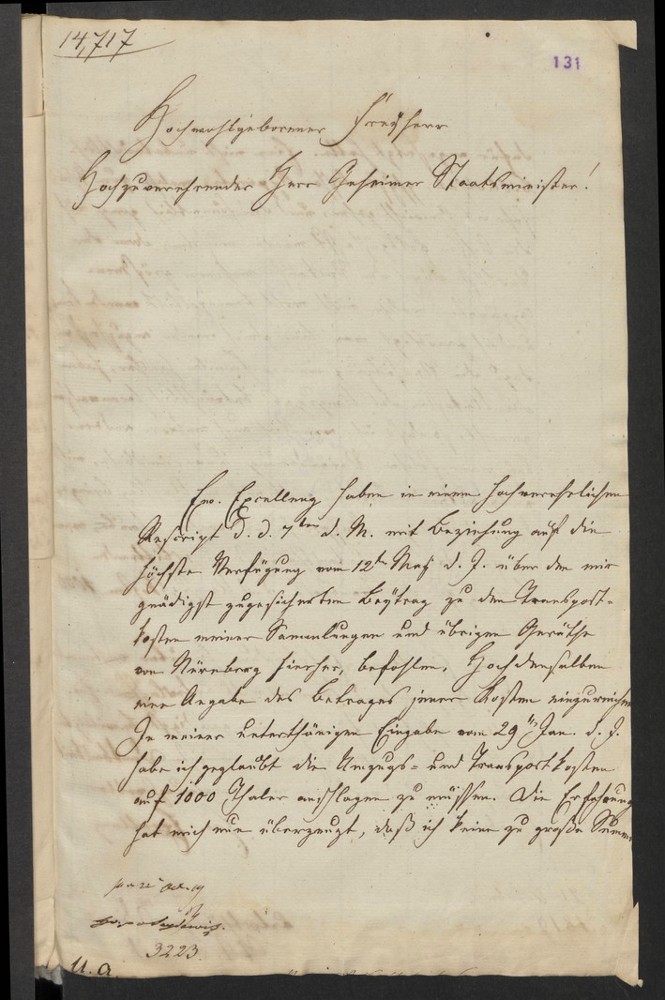 14,717
131
Hochwohlgeborener Freyherr
Hochzuverehrender Herr Geheimer Staatsminister!
Ew. Excellenz haben in einem hochverehrlichen
Rescript d. d. 7ten d. M. mit Beziehung auf die
höchste Verfügung vom 12ten May d. J. über den mir
gnädigst zugesicherten Beytrag zu den Transport-
kosten meiner Sammlungen und übrigen Geräthe
von Nürnberg hierher, befohlen, Hochdenselben
eine Angabe des Betrages jener Kosten einzureichen
In meiner unterthänigen Eingabe vom 29ten Jan. d. J.
habe ich geglaubt die Umzugs- und Transportkosten
auf 1000 Thaler anschlagen zu müssen. Die Erfahrung
hat mich nun überzeugt, daß ich keine zu große Summe
3223.